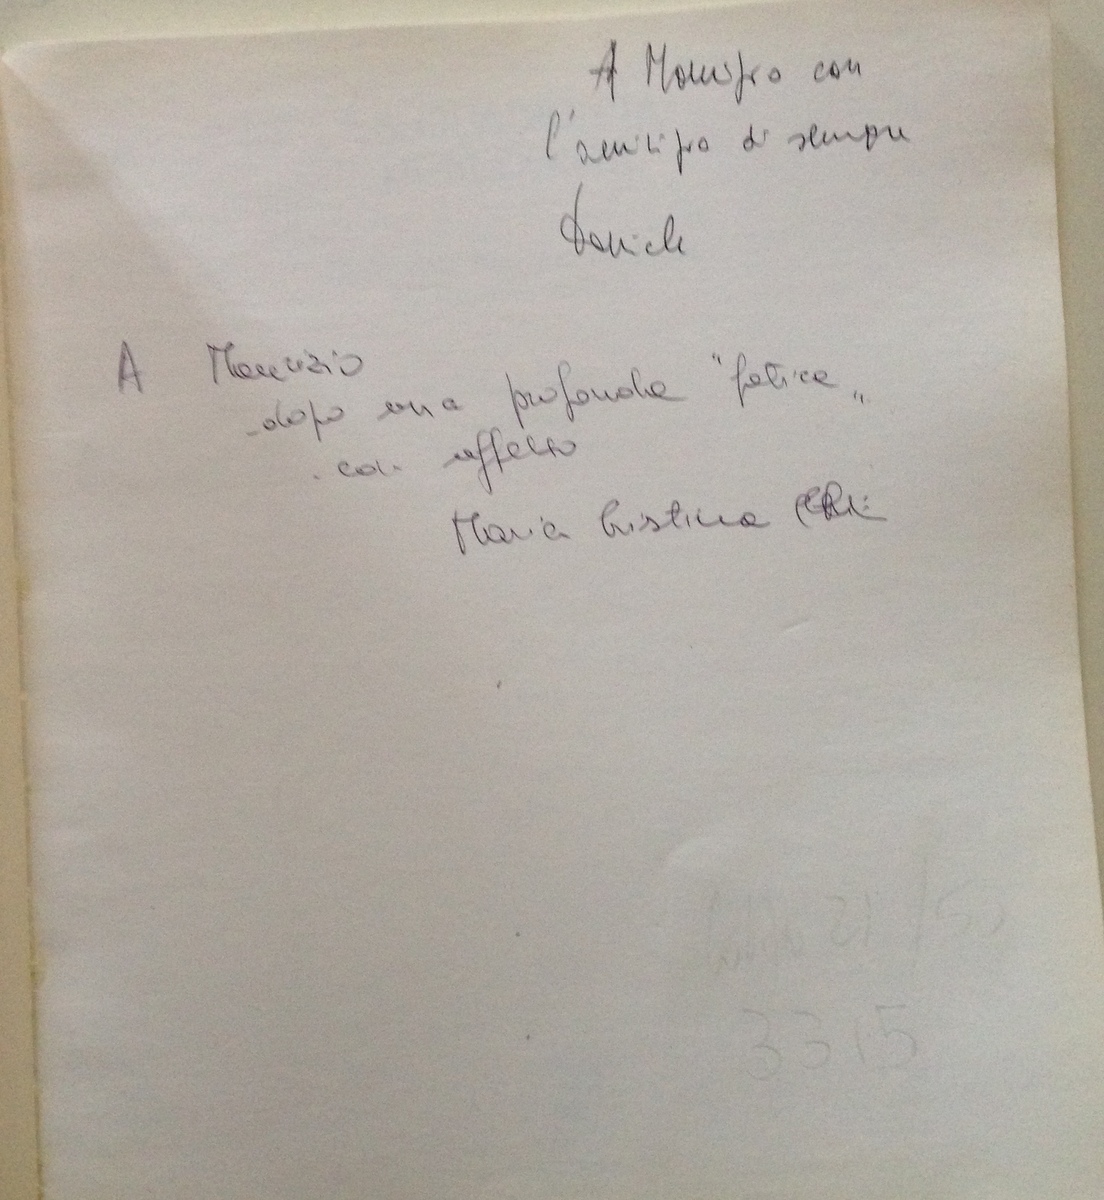 A Maurizio con
l'amicizia di sempre
Daniele
A Maurizio
dopo una profonda "fatica"
con affetto
Maria Cristina
3315